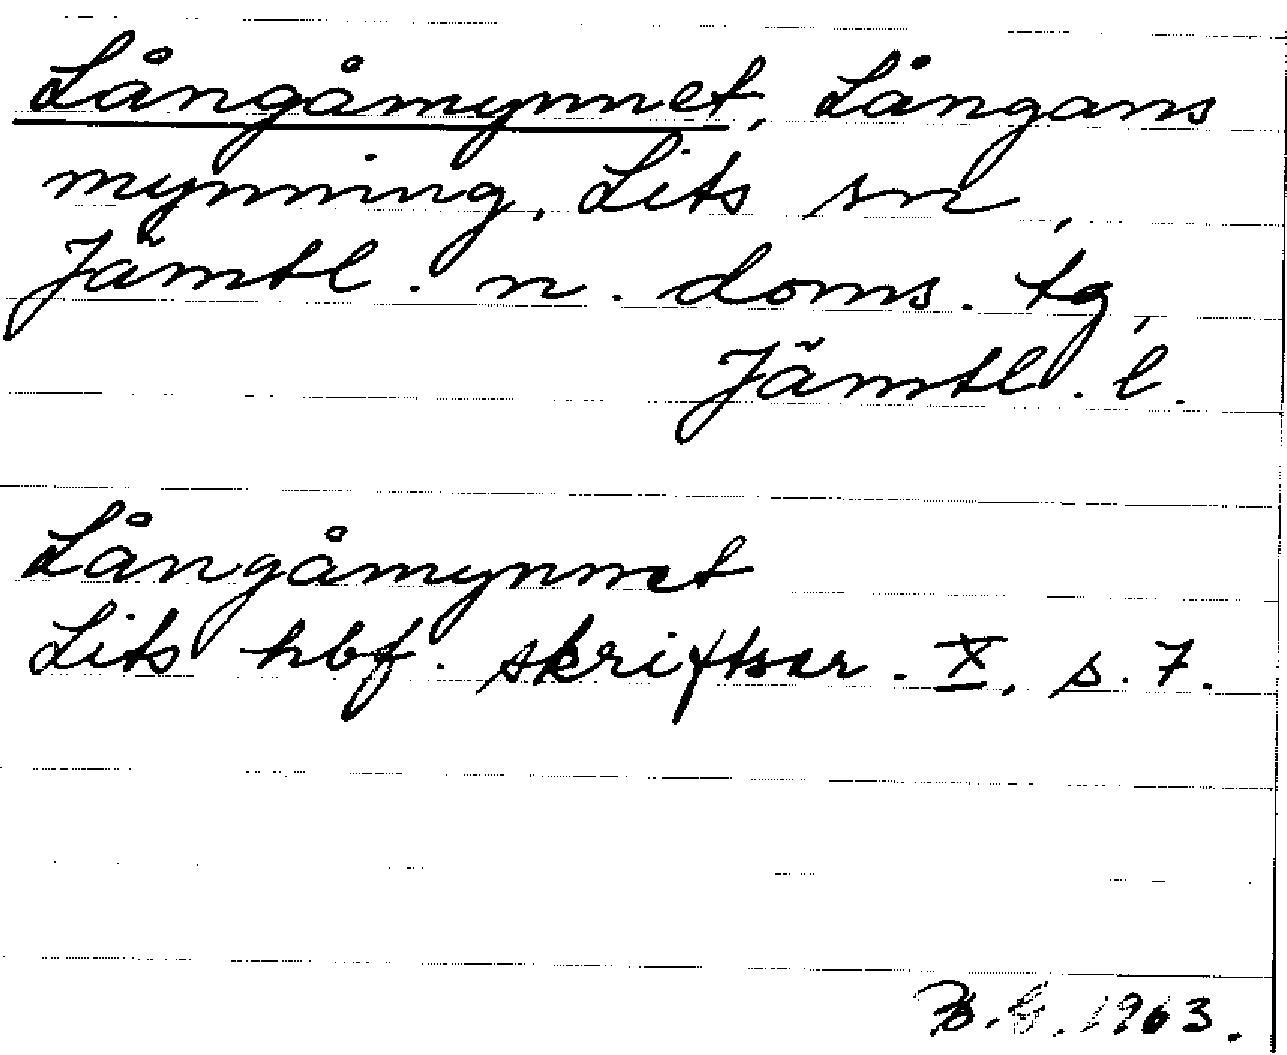 Långåmynnet, Långans
mynning, Lits sn,
Jämtl. n. doms. tg,
Jämtl. l.
Långåmynnet
Lits hbf. skriftser. X, s. 7.
B. G. 1963.